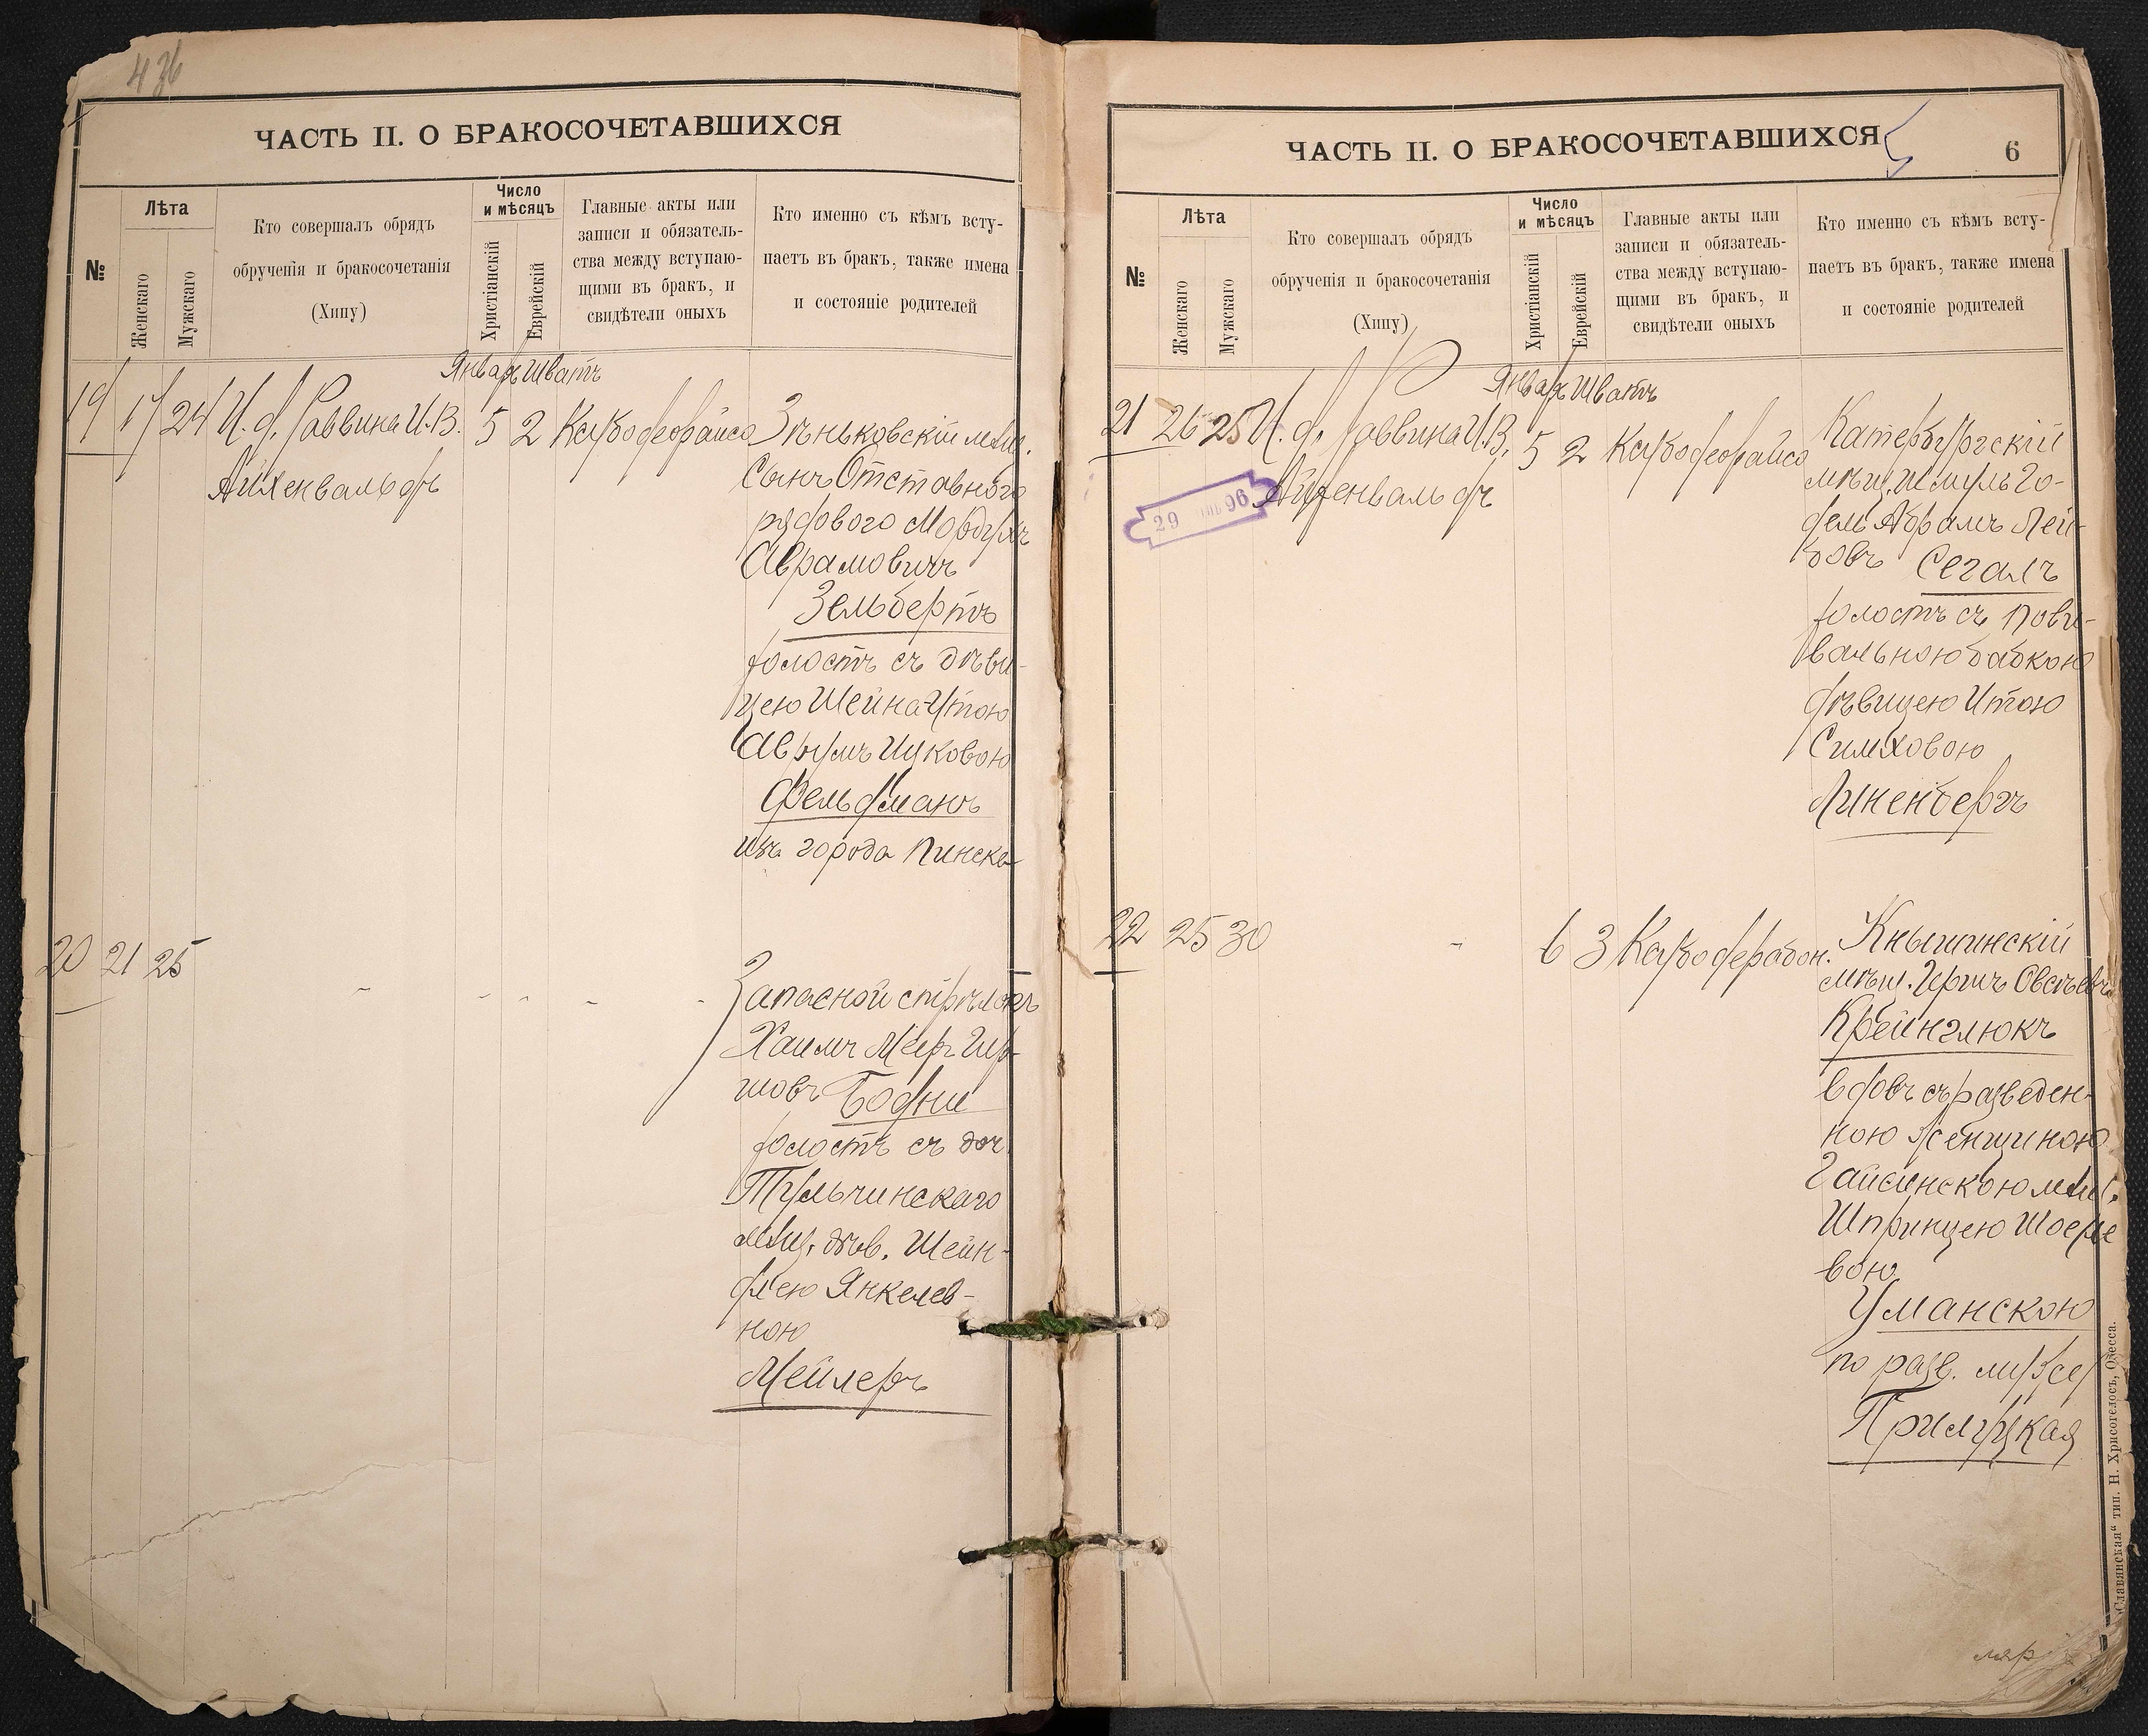 436
ЧАСТЬ II. О БРАКОСОЧЕТАВШИХСЯ
№
Лѣта
Женскаго
Мужскаго
Кто совершалъ обрядъ
обрученія и бракосочетанія
(Хипу)
Число
и мѣсяцъ
Христіанскій
Еврейскій
Главные акты или
записи и обязатель-
ства между вступаю-
щими въ бракъ, и
свидѣтели оныхъ
Кто именно съ кѣмъ всту-
паетъ въ бракъ, также имена
и состояніе родителей
Январ Шватъ
19 17 24 И. д. Раввина И. В. 5 2
Айхенвальдъ
Зѣньковскій мѣщ.
Сынъ Отставного
рядового Мордухъ
Аврамовичъ
Зельбертъ
холостъ съ дѣви-
цею Шейна Итою
Аврумъ Ицковою
Фельдманъ
изъ города Пинска
20 21 25 " " " " "
Запасной стрѣлокъ
Хаимъ Меер Гер-
шовъ Бодни
холостъ съ доч.
Тульчинскаго
мѣщ. дѣв. Шейн-
длею Янкелев-
ною
Мейлеръ
ЧАСТЬ II. О БРАКОСОЧЕТАВШИХСЯ
6
№
Лѣта
Женскаго
Мужскаго
Кто совершалъ обрядъ
обрученія и бракосочетанія
(Хипу)
Число
и мѣсяцъ
Христіанскій
Еврейскій
Главные акты или
записи и обязатель-
ства между вступаю-
щими въ бракъ, и
свидѣтели оныхъ
Кто именно съ кѣмъ всту-
паетъ въ бракъ, также имена
и состояніе родителей
Январ Шватъ
21 26 25 И. д. Раввина И. В. 5 2
Айхенвальдъ
29 96
Катербургскій
мѣщ. Шмуль Го-
дель Абрамъ Лей-
ковъ Сегалъ
холостъ съ пови-
вальною бабкою
дѣвицею Итою
Симховою
Линенбергъ
22 25 30 " 6 3
Кнышинскій
мѣщ. Гершъ Овсѣевъ
Крейнглюкъ
вдовъ съ разведен-
ною женщиною
Гайсинскою мѣщ.
Шпринцею Шосте
вою
Уманскою
по разв. мужу
Прилуцкая
„Славянская“ тип. Н. Хрисогелосъ, Одесса.